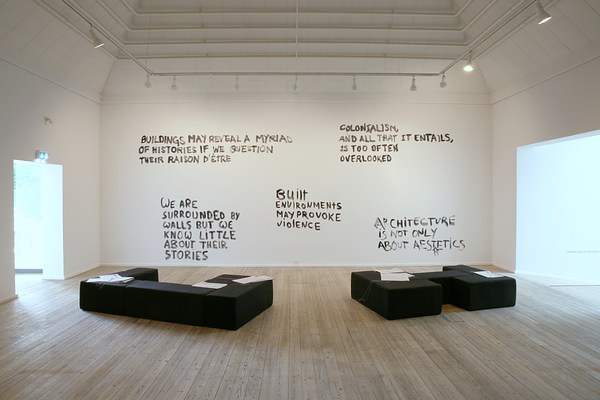 BUILDINGS MAY REVEAL A MYRIAD
OF HISTORIES IF WE QUESTION
THEIR RAISON D'ÊTRE
COLONIALISM,
AND ALL THAT IT ENTAILS,
IS TOO OFTEN
OVERLOOKED
WE ARE
SURROUNDED BY
WALLS BUT WE
KNOW LITTLE
ABOUT THEIR
STORIES
Built
ENVIRONMENTS
MAY PROVOKE
VIOLENCE
ARCHITECTURE
IS NOT ONLY
ABOUT AESTETICS